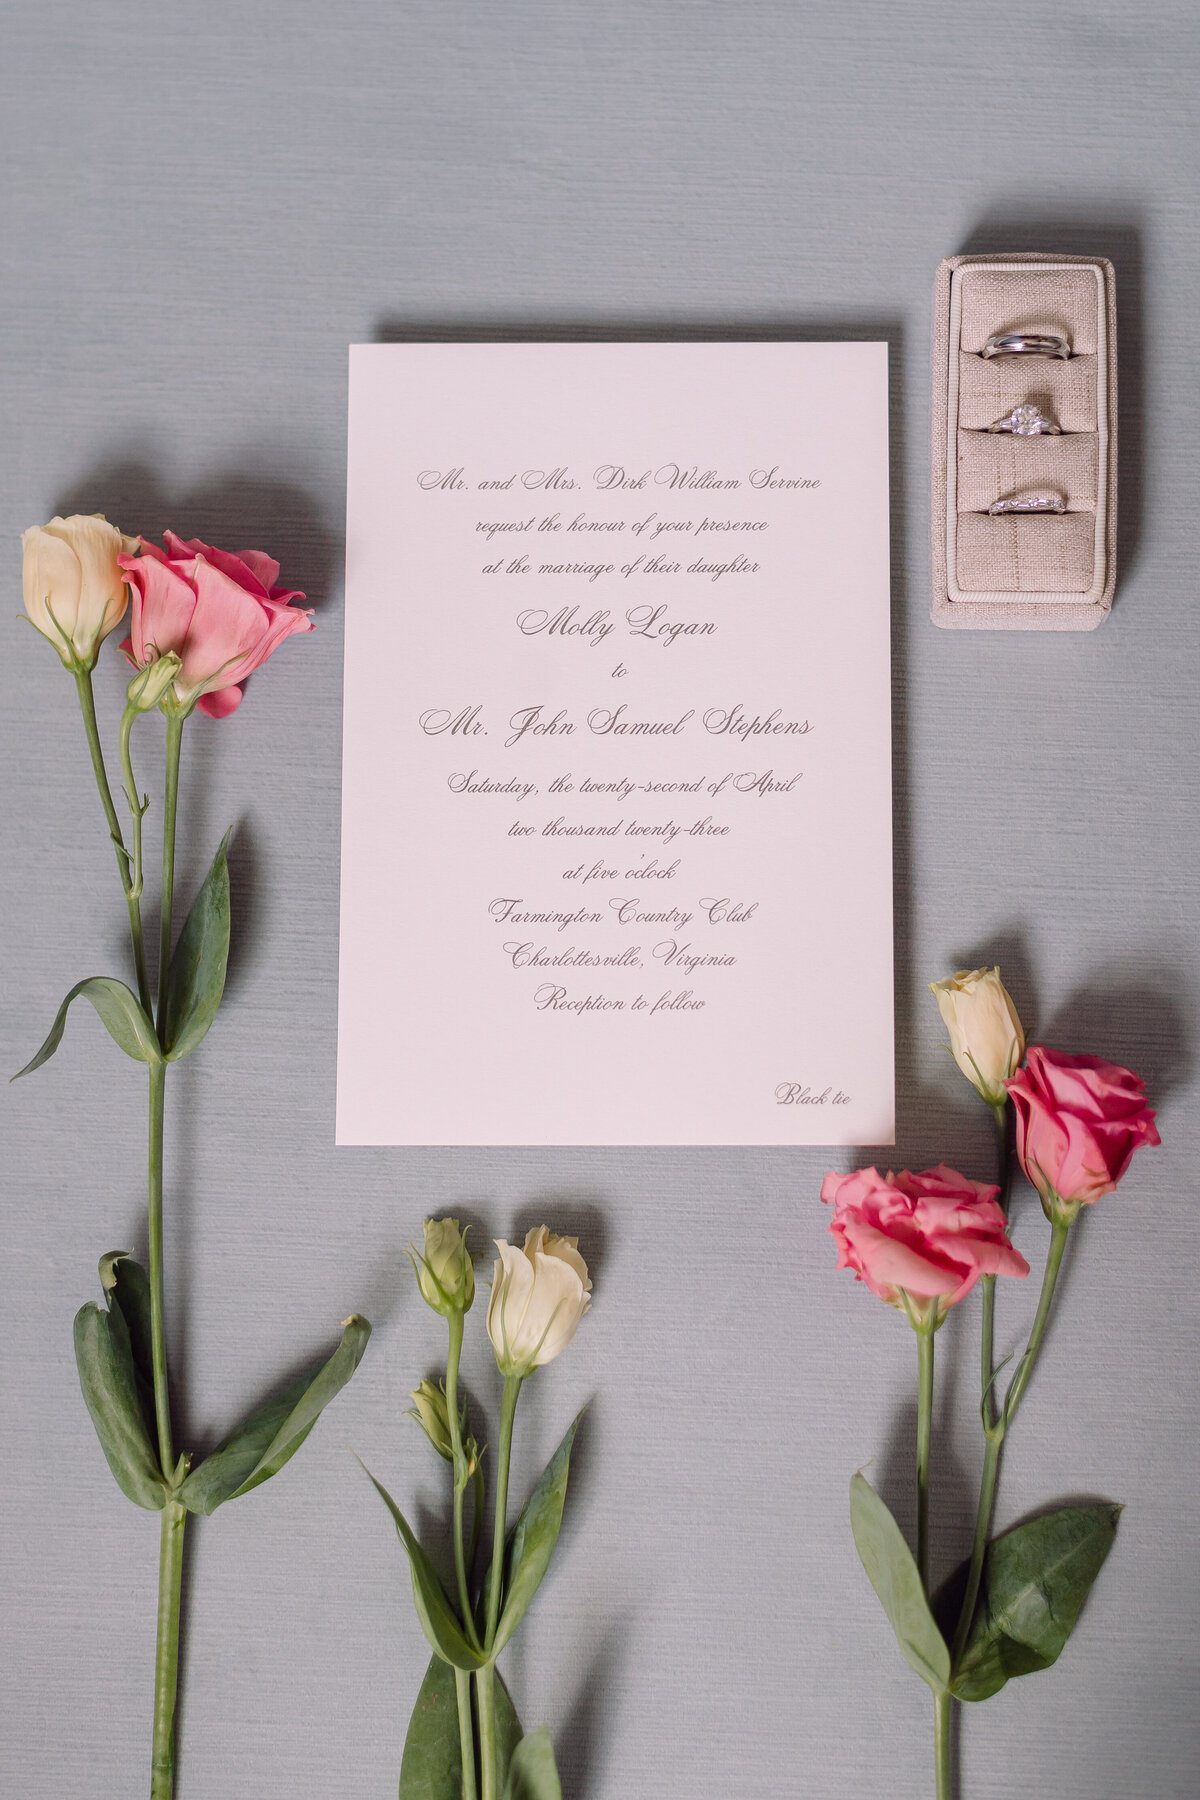 Mr. and Mrs. Dirk William Servine
request the honour of your presence
at the marriage of their daughter
Molly Logan
to
Mr. John Samuel Stephens
Saturday, the twenty-second of April
two thousand twenty-three
at five o'clock
Farmington Country Club
Charlottesville, Virginia
Reception to follow
Black tie